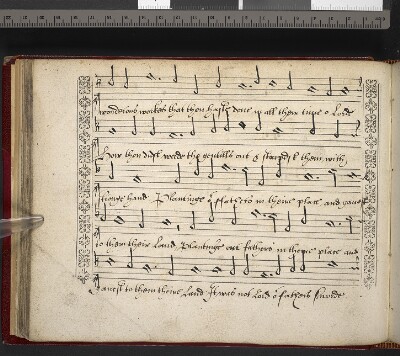 wonderous workes that thou hast done in all their time o Lord
how thou didst weede the gentills out & them with
stronge hand Plantinge o fathers in theire place and gavest
to them their Land Plantinge our fathers in theire place and
gavest to them theire Land It was not Lord o fathers sworde